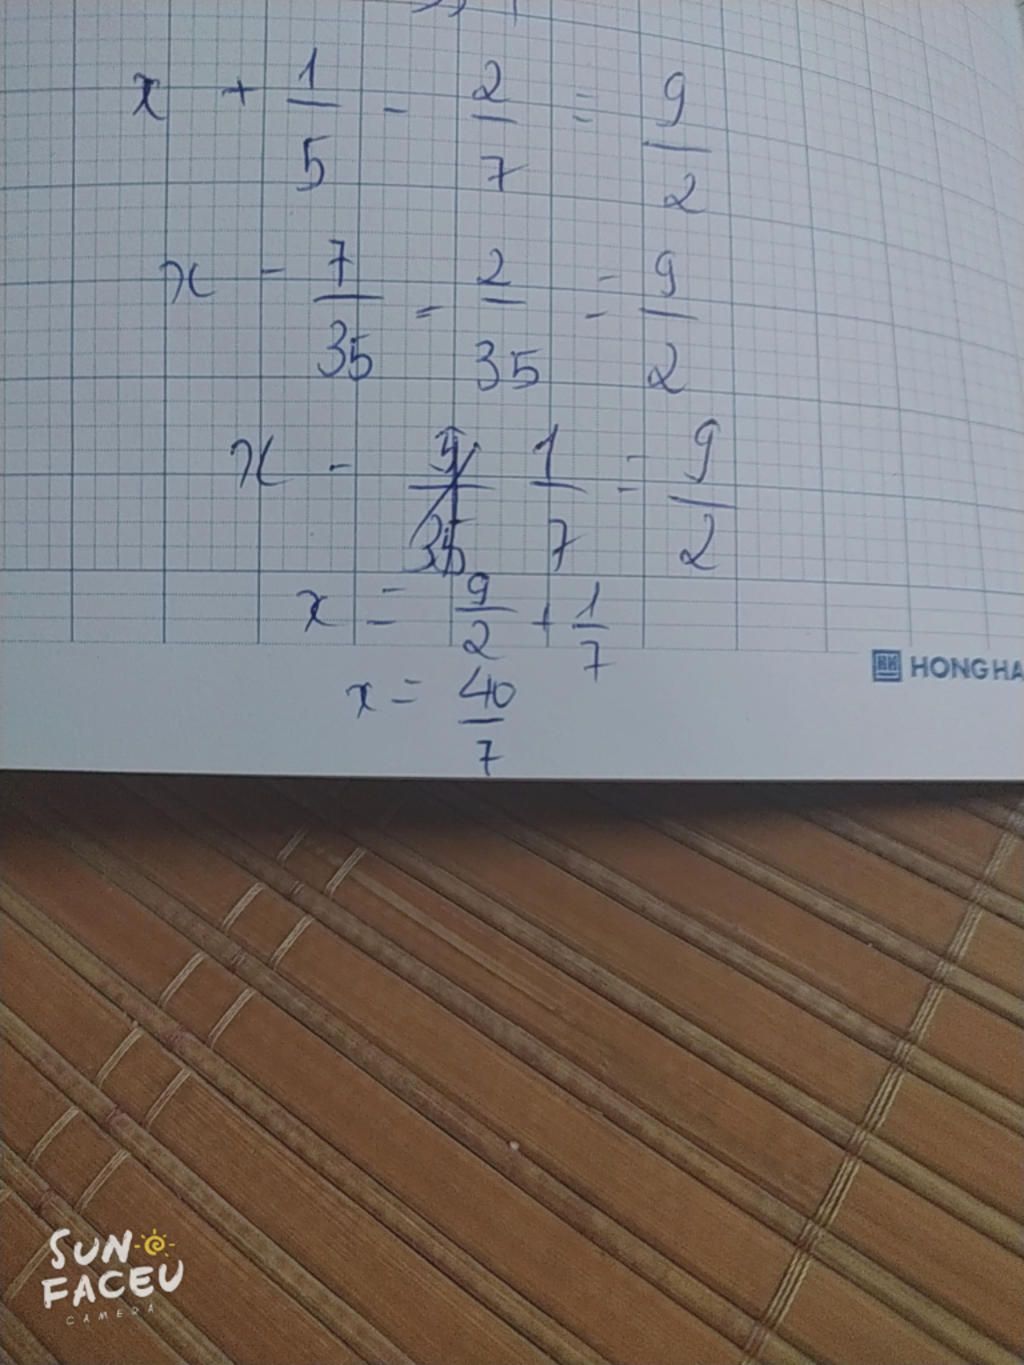 x + 1/5 - 2/7 = 9/2
x - 7/35 - 2/35 = 9/2
x - 1/7 = 9/2
x = 9/2 + 1/7
x = 40/7
HONG HA
SUN
FACEU
CAMERA